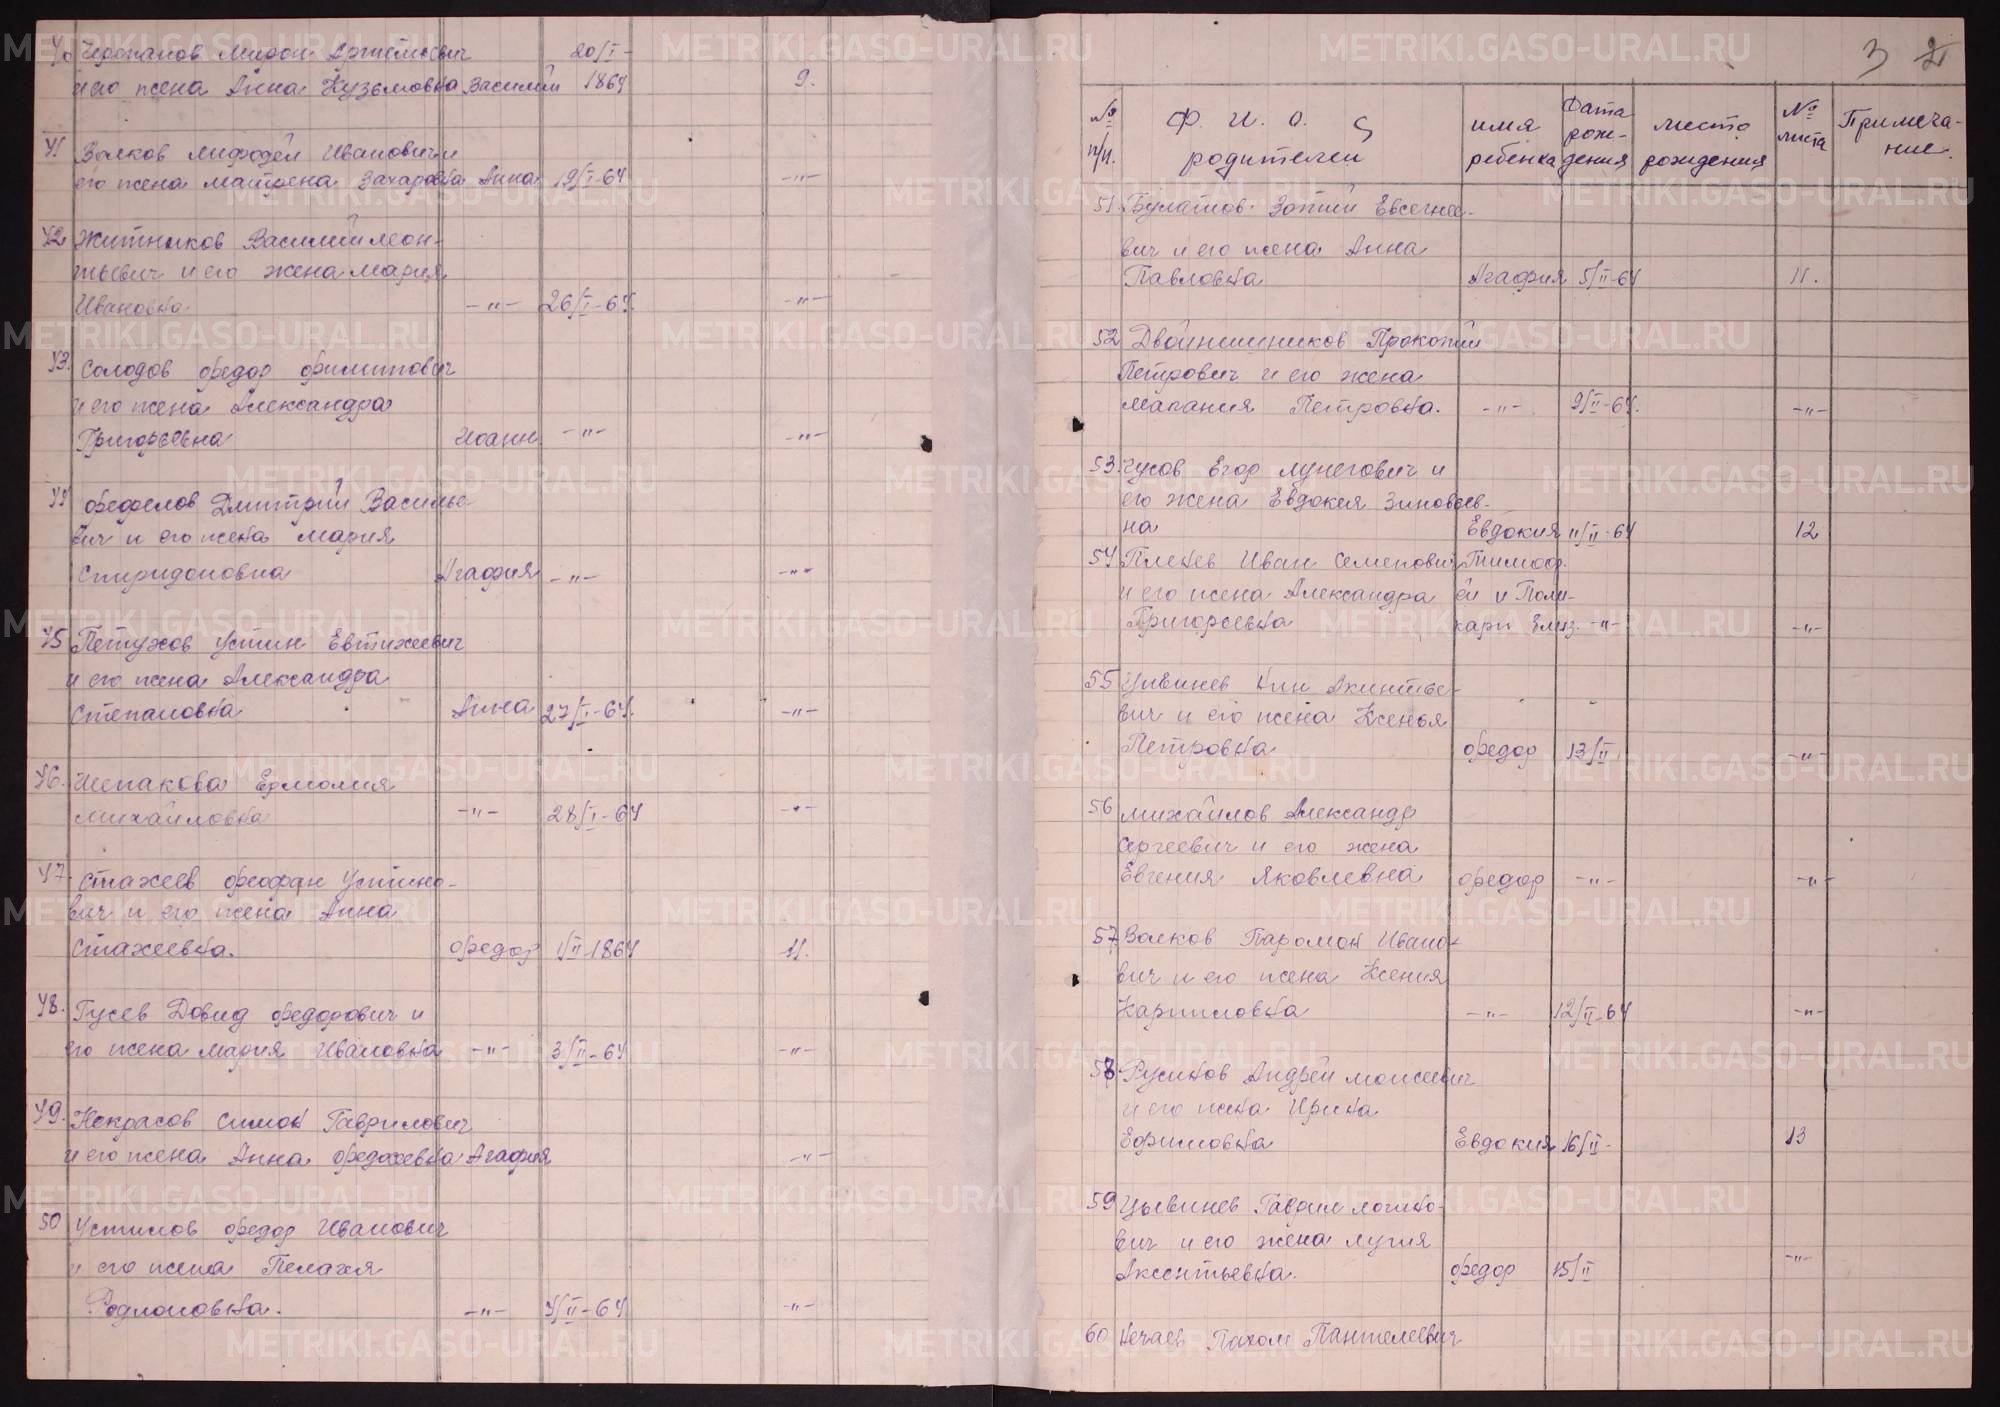 40 Черепанов Мирон Артемьевич 20/I-
и его жена Анна Кузьмовна Василий 1864 9.
41 Волков Мифодей Иванович и
его жена Матрена Захаровна Анна 19/I-64 -"-
42 Житников Василий Леон-
тьевич и его жена Мария
Ивановна -"- 26/I-64. -"-
43. Солодов Федор Филиппович
и его жена Александра
Григорьевна Иоанн -"- -"-
44 Федрелов Дмитрий Василье-
вич и его жена Мария
Спиридоновна Агафия -"- -"-
45 Петухов Устин Евтихеевич
и его жена Александра
Степановна Анна 27/I-64. -"-
46. Шепакова Ермолия
Михайловна -"- 28/I-64 -"-
47. Стахеев Феофан Устино-
вич и его жена Анна
Стахеевна. Федор 1/II-1864 11.
48. Гусев Довид Федорович и
его жена Мария Ивановна -"- 3/II-64 -"-
49. Некрасов Симон Гаврилович
и его жена Анна Федосеевна Агафия -"-
50 Устинов Федор Иванович
и его жена Пелагея
Родионовна. -"- 4/II-64 -"-
3 2
№ п/п. Ф. И. О. родителей имя ребенка Дата рож-дения место рождения № листа Примеча-ние.
51. Булатов Зотий Евсегнее-
вич и его жена Анна
Павловна Агафия 5/II-64 11.
52 Двойнишников Прокопий
Петрович и его жена
Малания Петровна. -"- 9/II-64. -"-
53. Чусов Егор Лупегович и
его жена Евдокея Зиновьев-
на Евдокия 11/II-64 12
54 Плехев Иван Семенович Тимоф.
и его жена Александра ей и Поли-
Григорьевна карп Близ. -"- -"-
55 Цивинев Кип Акинтье-
вич и его жена Ксенья
Петровна Федор 13/II -"-
56 Михайлов Александр
Сергеевич и его жена
Евгения Яковлевна Федор -"- -"-
57. Волков Паромон Ивано-
вич и его жена Ксения
Карпиловна -"- 12/II-64 -"-
58 Русинов Андрей Моисеевич
и его жена Ирина
Ефимовна Евдокия 16/II- 13
59 Цывинев Гаврил Логино-
вич и его жена Лукия
Аксентьевна. Федор 15/II -"-
60 Нечаев Пахом Пантелевич
METRIKI.GASO-URAL.RU